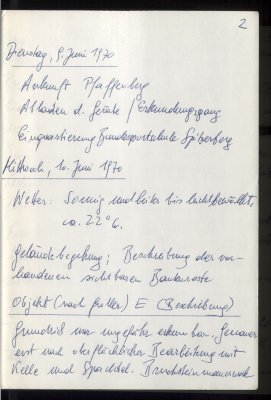 2
Dienstag, 9. Juni 1970
Ankunft Pfaffenberg
Abladen d. Geräte / Erkundungsgang
Einquartierung Bundessportschule Spitzerberg
Mittwoch, 10. Juni 1970
Wetter: Sonnig und heiter bis leicht bewölkt,
ca. 22°C.
Geländebegehung; Beschreibung der vor-
handenen sichtbaren Baureste
Objekt (nach Groller) E (Beschreibung)
Grundriß nur ungefähr erkennbar. Genauer
erst nach oberflächlicher Bearbeitung mit
Kelle und Spachtel. Bruchsteinmauerwerk